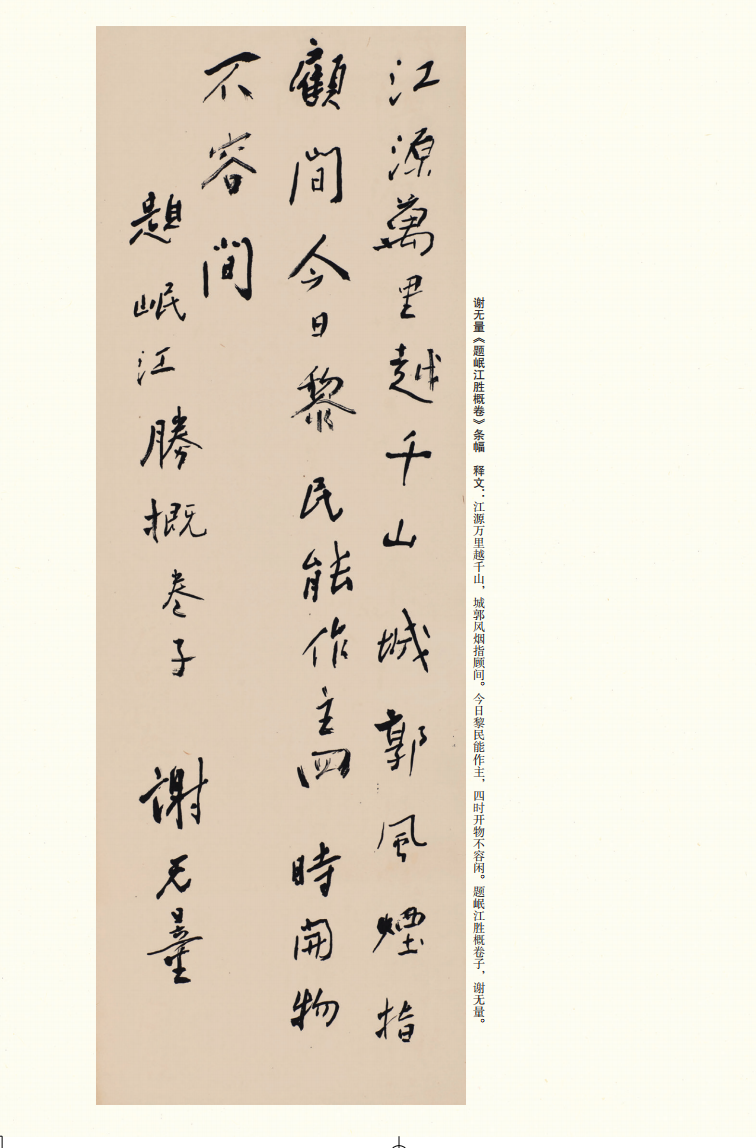 谢无量《题岷江胜概卷》条幅　释文：江源万里越千山，城郭风烟指顾间。今日黎民能作主，四时开物不容闲。题岷江胜概卷子，谢无量。
江源萬里越千山城郭風煙指
顧間今日黎民能作主四時開物
不容間
題岷江勝概卷子　謝无量